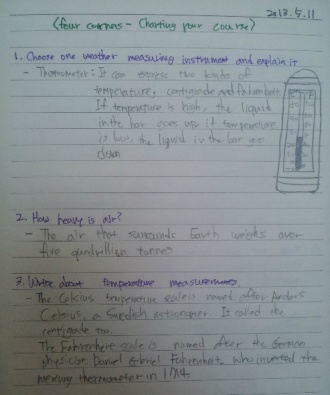 2013. 5. 11
<Four corners - Charting your course>
1. Choose one weather measuring instrument and explain it
- Thermometer: It can assess two kinds of
temperature, centigrade and Fahrenheit.
If temperature is high, the liquid
in the bar goes up, if temperature
is low, the liquid in the bar goes
down
2. How heavy is air?
- The air that surrounds Earth weighs over
five quadrillion tonnes
3. Write about temperature measurements.
- The Celsius temperature scale is named after Anders
Celsius, a Swedish astronomer. It called the
centigrade too.
The Fahrenheit scale is named after the German
physician Daniel Gabriel Fahrenheit, who invented the
mercury thermometer in 1714.